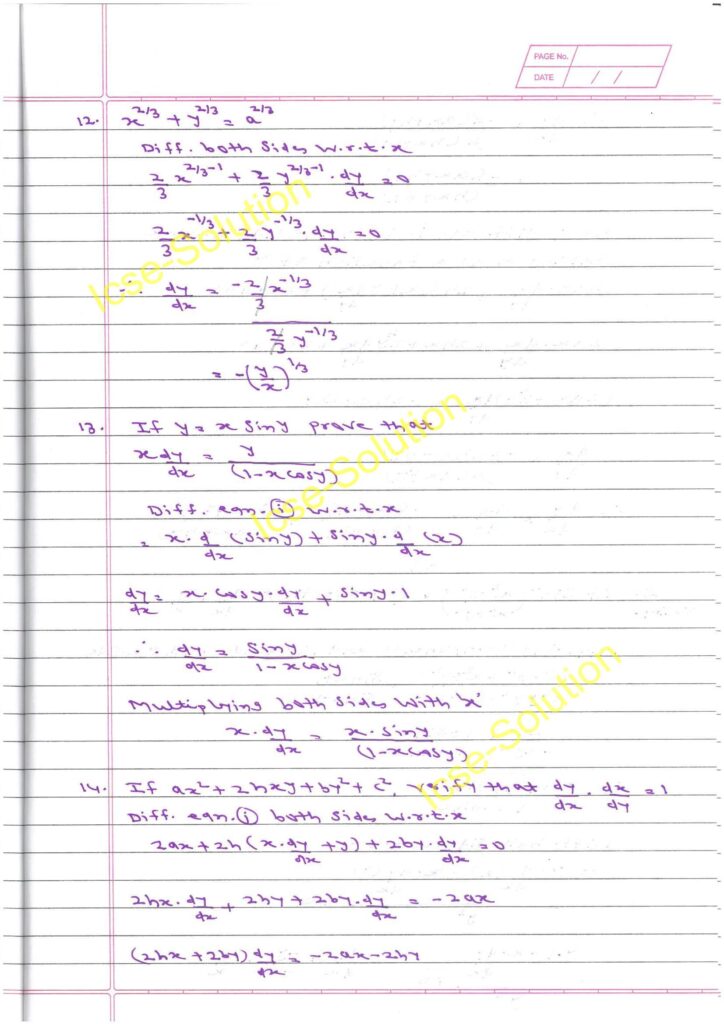 PAGE No.
DATE / /
12. x^(2/3) + y^(2/3) = a^(2/3)
Diff. both sides w.r.t. x
2/3 x^(2/3-1) + 2/3 y^(2/3-1) . dy/dx = 0
2/3 x^(-1/3) + 2/3 y^(-1/3) . dy/dx = 0
∴ dy/dx = (-2/3 x^(-1/3)) / (2/3 y^(-1/3))
= -(y/x)^(1/3)
13. If y = x siny prove that
x dy/dx = y/(1-xcosy)
Diff. eqn. (i) w.r.t. x
= x . d/dx (siny) + siny . d/dx (x)
dy/dx = x . cosy . dy/dx + siny . 1
∴ dy/dx = siny/(1-xcosy)
Multiplying both sides with 'x'
x . dy/dx = x . siny/(1-xcosy)
14. If ax² + 2hxy + by² + c², verify that dy/dx . dx/dy = 1
Diff. eqn. (i) both sides w.r.t. x
2ax + 2h (x . dy/dx + y) + 2by . dy/dx = 0
2hx . dy/dx + 2hy + 2by . dy/dx = -2ax
(2hx + 2by) dy/dx = -2ax - 2hy
Icse-Solution
Icse-Solution
Icse-Solution